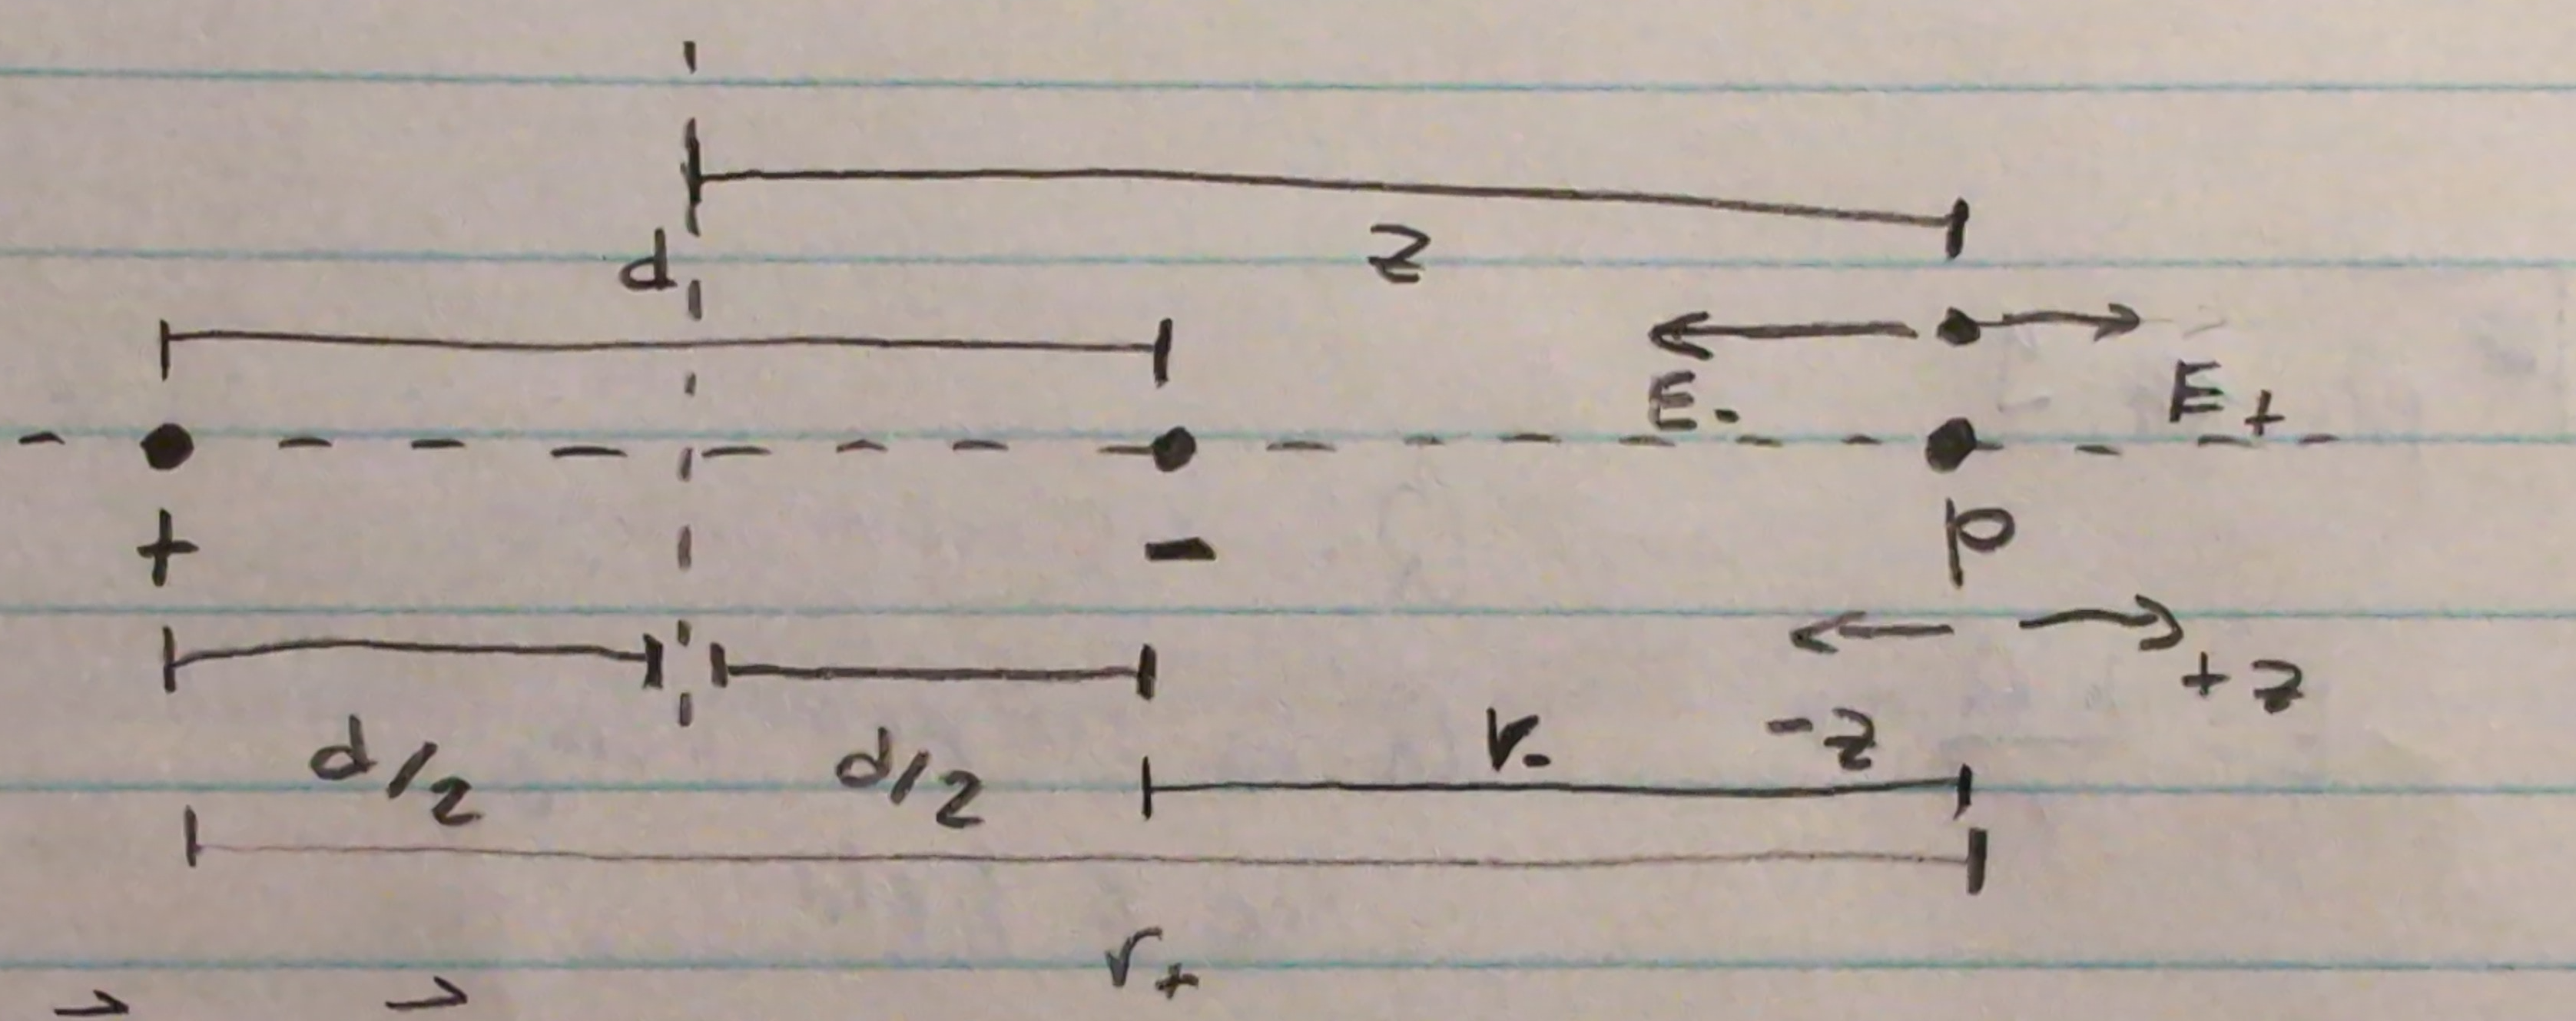 d
z
E- E+
+ - p
-z +z
d/2 d/2 r-
r+